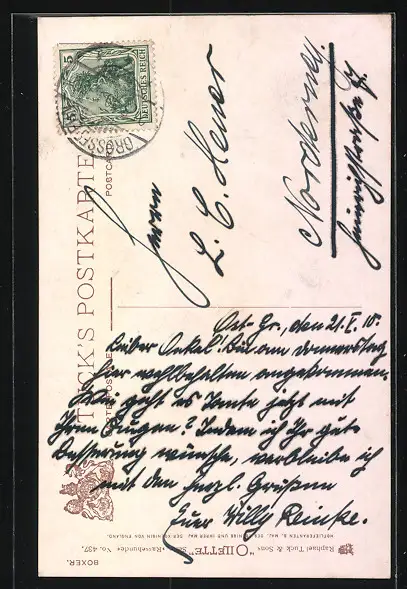 TUCK'S POSTKARTE
POSTCARD
5
DEUTSCHES REICH
Herrn
L. C. Heuer
Norderney.
Ost-Gr., den 21. V. 10.
Lieber Onkel! Bin am Donnerstag
hier wohlbehalten angekommen.
Wie geht es Tante jetzt mit
Ihren Augen? Indem ich Ihr gute
Besserung wünsche, verbleibe ich
mit den herzl. Grüßen
Euer Willy Reinke.
HOFLIEFERANTEN S. MAJ. DES KÖNIGS UND IHRER MAJ. DER KÖNIGIN VON ENGLAND.
Raphael Tuck & Sons' "OILETTE" Serie "Rassehunde" No. 437.
BOXER.